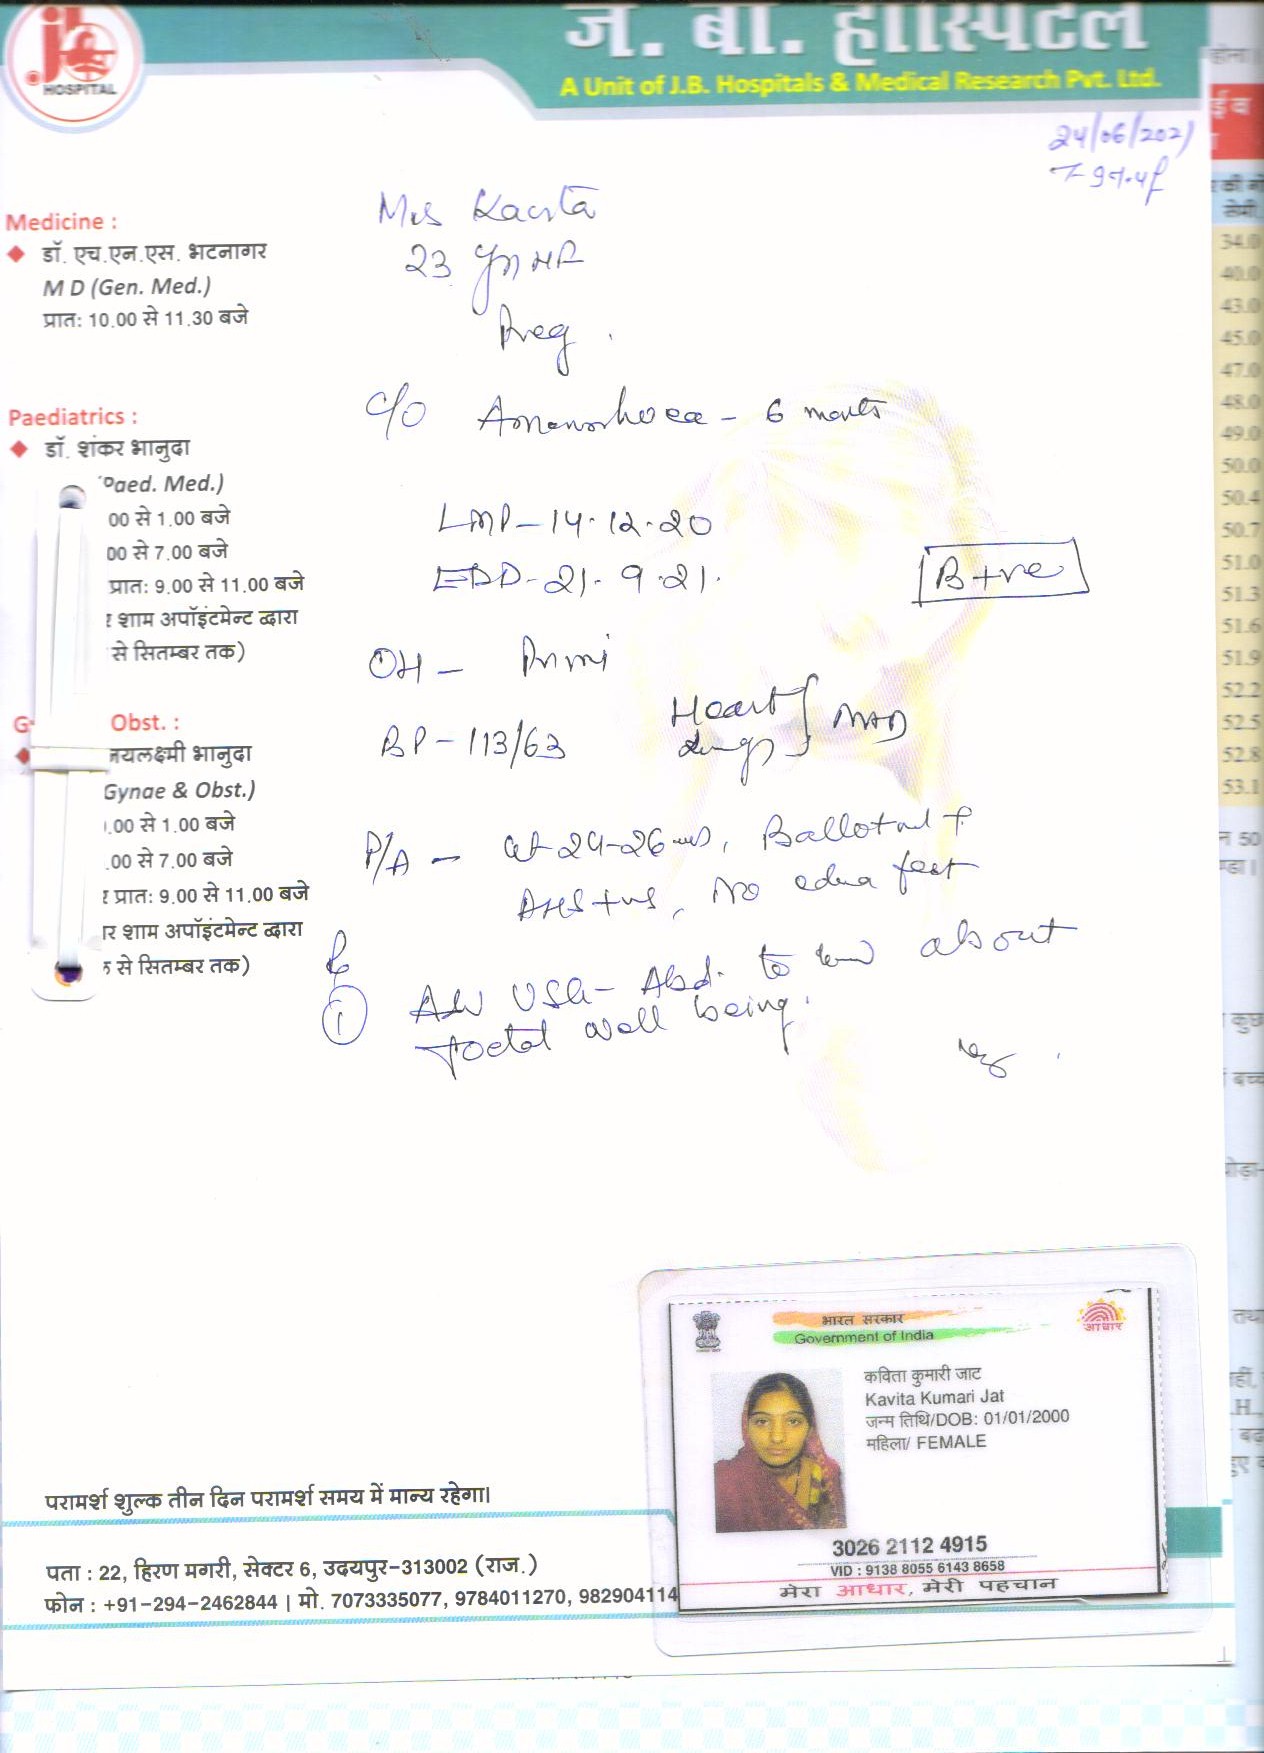 ज. बी. हॉस्पिटल
A Unit of J.B. Hospitals & Medical Research Pvt. Ltd.
HOSPITAL
24/06/2021
Mrs Kavita
23 yrs
Preg.
Medicine :
डॉ. एच.एन.एस. भटनागर
M D (Gen. Med.)
प्रातः 10.00 से 11.30 बजे
Paediatrics :
डॉ. शंकर भानुदा
Paed. Med.)
00 से 1.00 बजे
00 से 7.00 बजे
प्रातः 9.00 से 11.00 बजे
र शाम अपॉइंटमेन्ट द्वारा
से सितम्बर तक)
Obst. :
जयलक्ष्मी भानुदा
Gynae & Obst.)
.00 से 1.00 बजे
.00 से 7.00 बजे
र प्रातः 9.00 से 11.00 बजे
र शाम अपॉइंटमेन्ट द्वारा
से सितम्बर तक)
C/O Amenorrhoea - 6 months
LMP - 14.12.20
EDD - 21.9.21.
B+ve
OH - Primi
BP - 113/63
Heart
Lungs } NAD
P/A - 24-26 wks, Ballotment +
FHS +ve, No edema feet
① USG - Abd. to know about
Foetal well being.
भारत सरकार
Government of India
आधार
कविता कुमारी जाट
Kavita Kumari Jat
जन्म तिथि/DOB: 01/01/2000
महिला/ FEMALE
3026 2112 4915
VID : 9138 8055 6143 8658
मेरा आधार, मेरी पहचान
परामर्श शुल्क तीन दिन परामर्श समय में मान्य रहेगा।
पता : 22, हिरण मगरी, सेक्टर 6, उदयपुर-313002 (राज.)
फोन : +91-294-2462844 | मो. 7073335077, 9784011270, 982904114
34.0
40.0
43.0
45.0
47.0
48.0
49.0
50.0
50.4
50.7
51.0
51.3
51.6
51.9
52.2
52.5
52.8
53.1